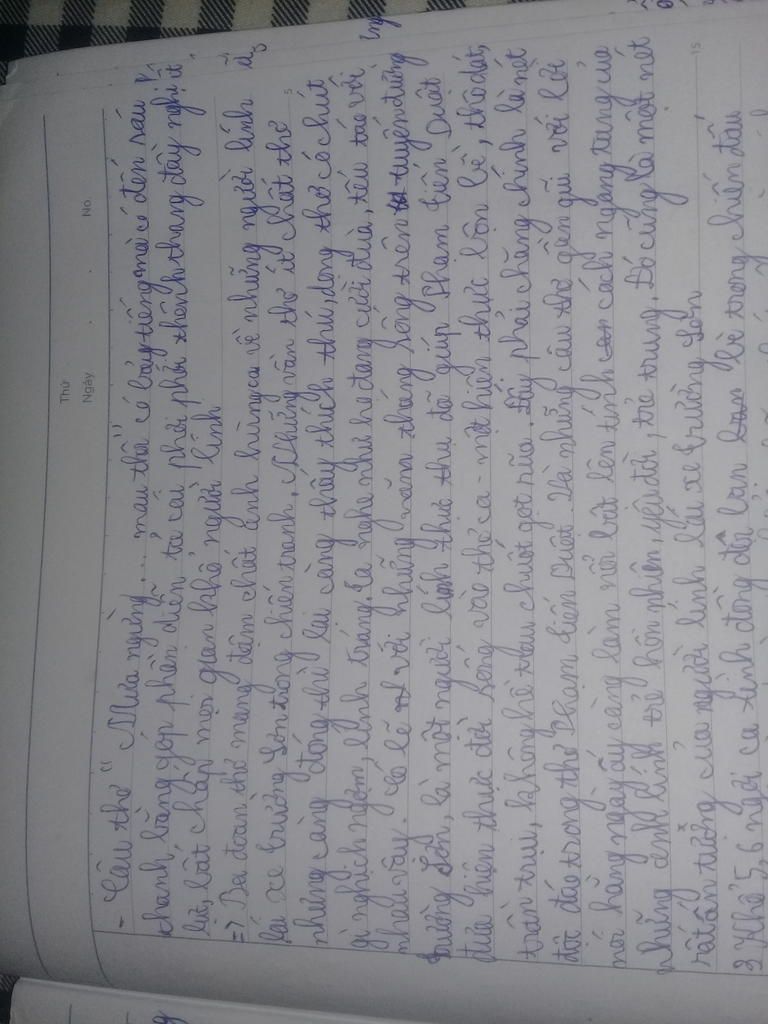 Thứ
Ngày
No.
- Câu thơ "Mưa ngừng ... mau thôi" có bảy tiếng mà có đến sáu
thanh bằng góp phần diễn tả cái phơi phới thênh thang đầy nghị
lực, bất chấp mọi gian khổ người lính
=> Ba đoạn thơ mang đậm chất anh hùng ca về những người lính
lái xe Trường Sơn trong chiến tranh. Những vần thơ ít chất thơ
nhưng càng đọc thì lại càng thấy thích thú, dòng thơ có chút
gì nghịch ngợm, lính tráng. Ta nghe như họ đang cười đùa, tếu táo với
nhau vậy. Có lẽ với những năm tháng sống trên tuyến đường
Trường Sơn, là một người lính thực thụ đã giúp Phạm Tiến Duật
đưa hiện thực đời sống vào thơ ca - một hiện thực bộn bề, thô ráp,
trần trụi, không hề trau chuốt gọt rũa. Đấy phải chăng chính là nét
độc đáo trong thơ Phạm Tiến Duật. Và những câu thơ gần gũi với lời
nói hằng ngày ấy càng làm nổi bật lên tính cách ngang tàng của
những anh lính trẻ hồn nhiên, yêu đời, trẻ trung. Đó cũng là một nét
rất ấn tượng của người lính lái xe Trường Sơn
3 Khổ 5, 6 ngợi ca tình đồng đội bạn bè trong chiến đấu
5
15